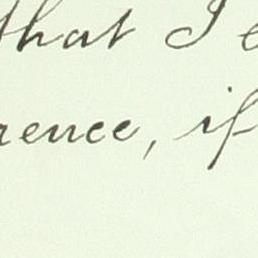 that I
rence, if